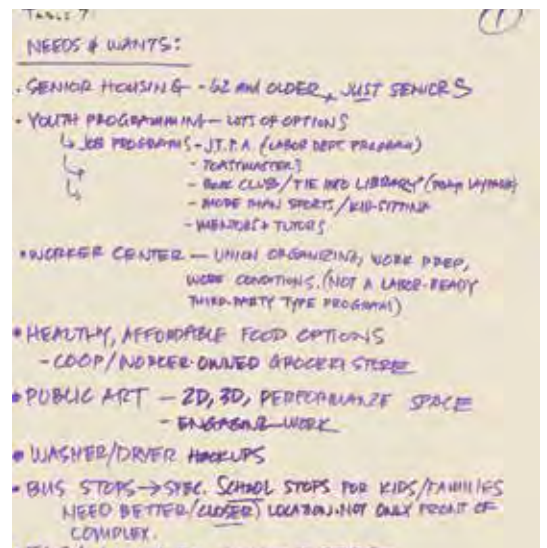 TABLE 7
1
NEEDS & WANTS:
• SENIOR HOUSING - 62 AND OLDER, JUST SENIORS
• YOUTH PROGRAMMING — LOTS OF OPTIONS
↳ JOB PROGRAMS - J.T.P.A. (LABOR DEPT. PROGRAM)
↳ - TOASTMASTERS
↳ - BOOK CLUB/TIE INTO LIBRARY
- MORE THAN SPORTS/KID-SITTING
- MENTORS + TUTORS
• WORKER CENTER — UNION ORGANIZING, WORK PREP,
WORK CONDITIONS. (NOT A LABOR-READY
THIRD-PARTY TYPE PROGRAM)
• HEALTHY, AFFORDABLE FOOD OPTIONS
- COOP/WORKER-OWNED GROCERY STORE
• PUBLIC ART — 2D, 3D, PERFORMANCE SPACE
- ENGAGING WORK
• WASHER/DRYER HOOKUPS
• BUS STOPS → SPEC. SCHOOL STOPS FOR KIDS/FAMILIES
NEED BETTER/(CLOSER) LOCATION. NOT ONLY FRONT OF
COMPLEX.